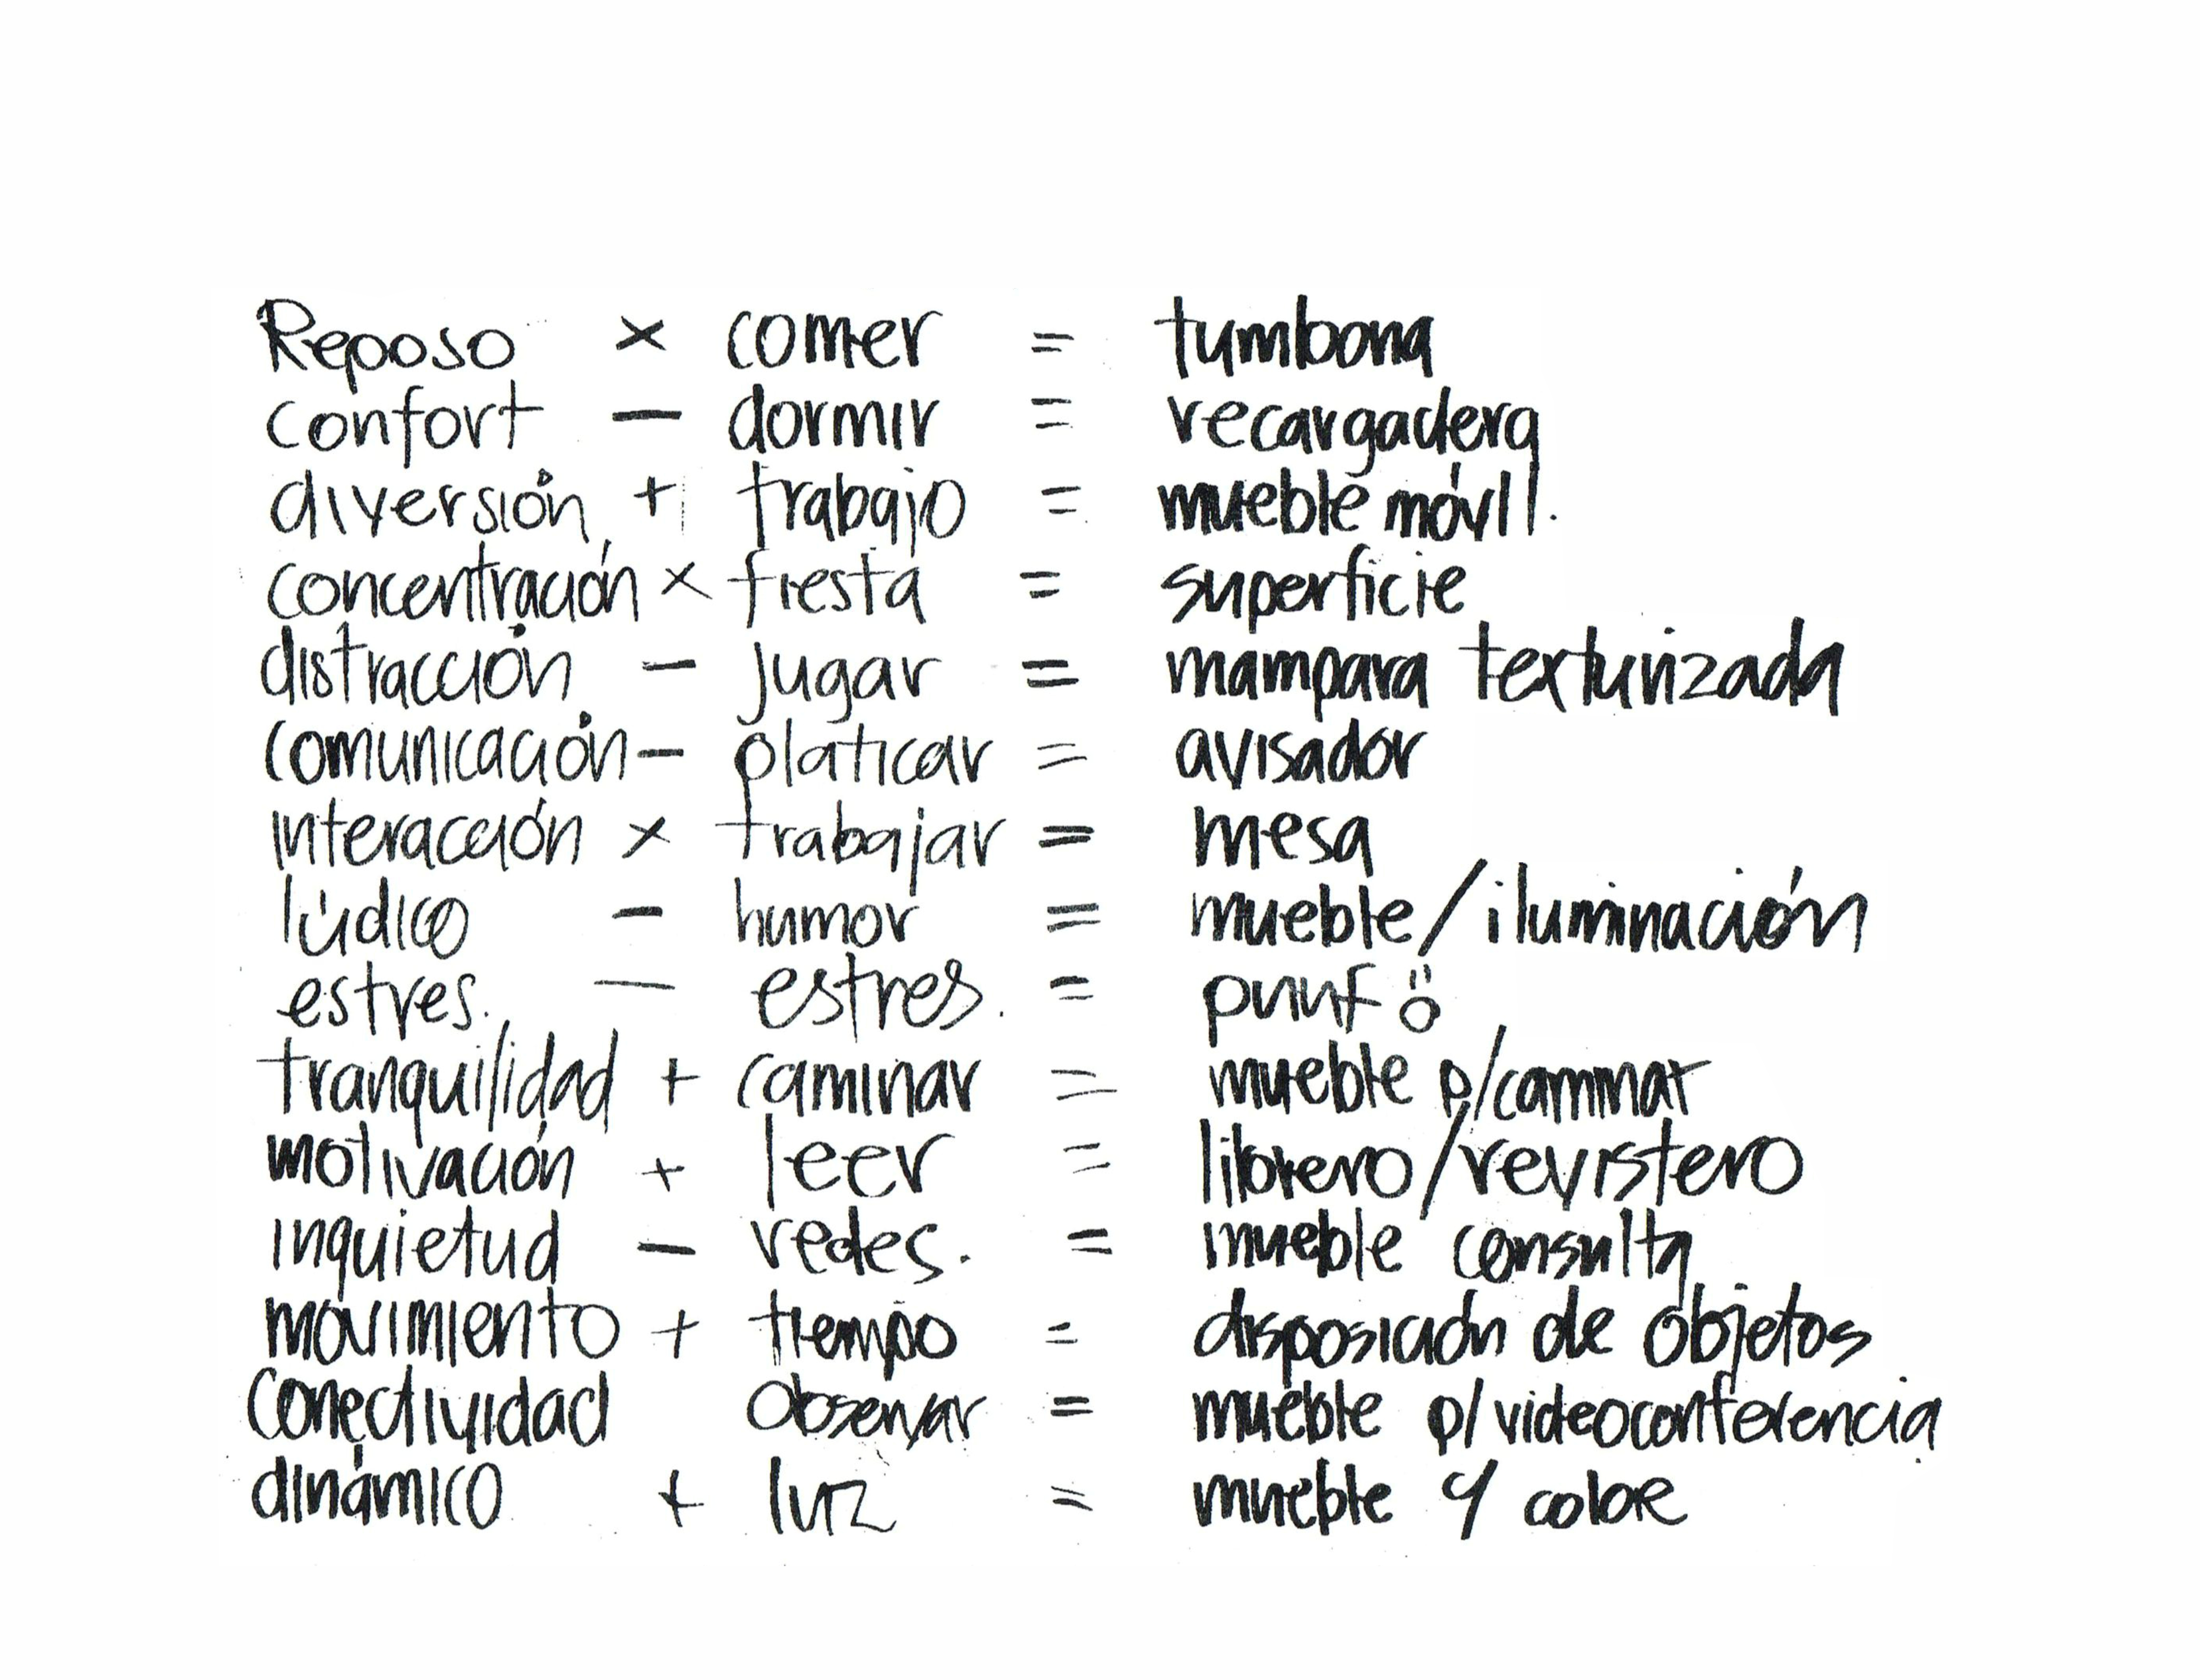 Reposo × comer = tumbona
confort – dormir = recargadera
diversión + trabajo = mueble móvil.
concentración × fiesta = superficie
distracción – jugar = mampara texturizada
comunicación – platicar = avisador
interacción × trabajar = mesa
lúdico – humor = mueble/iluminación
estres. – estres. = puuf ö
tranquilidad + caminar = mueble p/caminar
motivación + leer = librero/revistero
inquietud – redes. = mueble consulta
movimiento + tiempo = disposición de objetos
conectividad observar = mueble p/videoconferencia
dinámico + luz = mueble y color